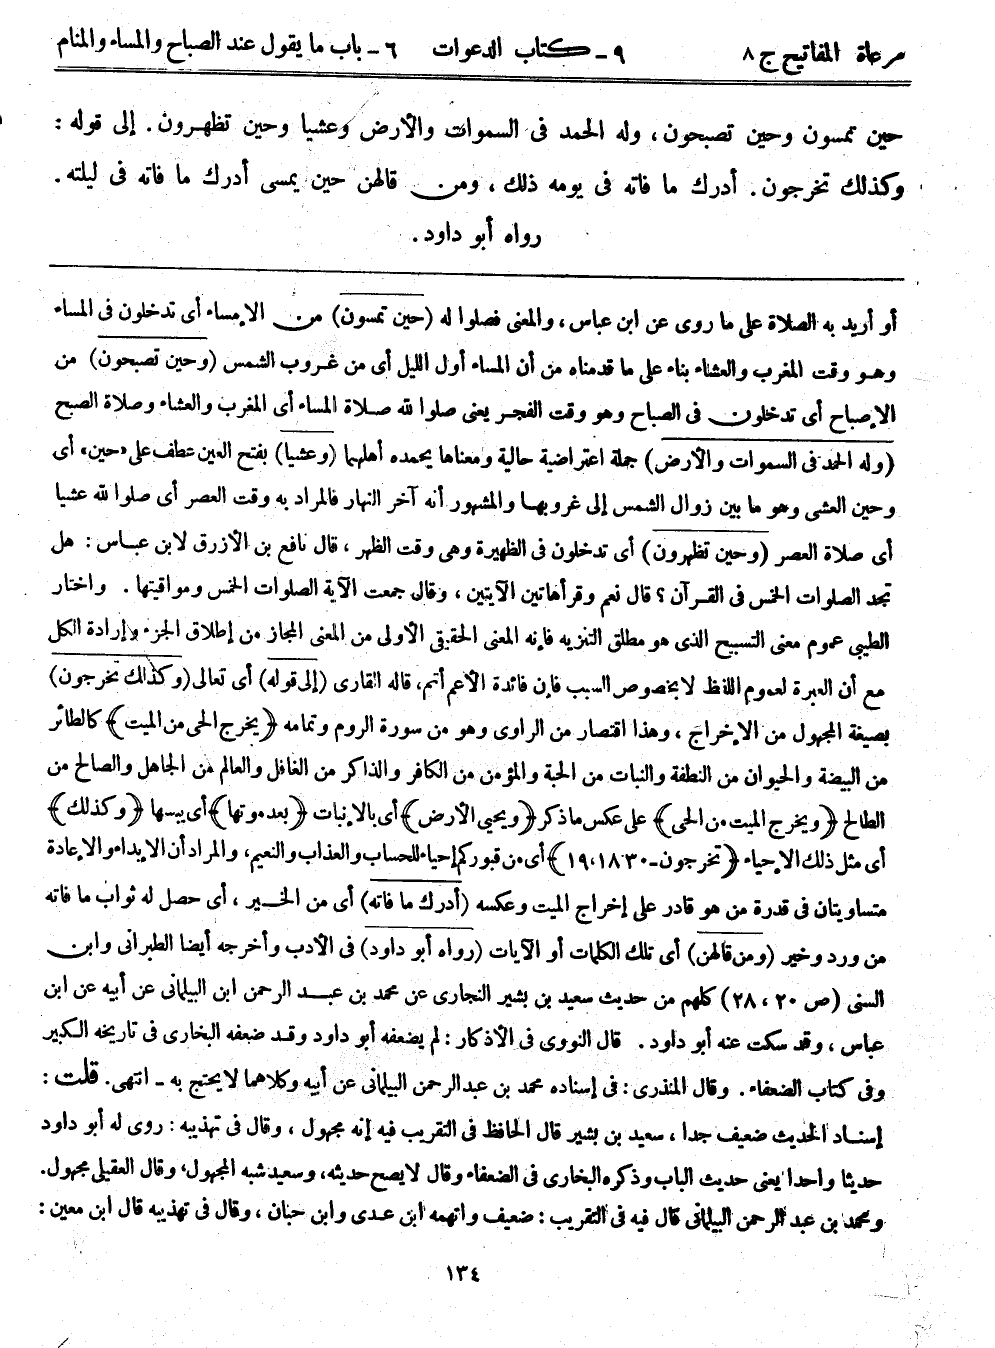 مرعاة المفاتيح ج ٨ ٩ ـ كتاب الدعوات ٦ ـ باب ما يقول عند الصباح والمساء والمنام
حين تمسون وحين تصبحون ، وله الحمد فى السموات والأرض وعشيا وحين تظهرون . إلى قوله :
وكذلك تخرجون . أدرك ما فاته فى يومه ذلك ، ومن قالهن حين يمسى أدرك ما فاته فى ليلته .
رواه أبو داود .
أو أريد به الصلاة على ما روى عن ابن عباس ، والمعنى فصلوا له (حين تمسون) من الإمساء أى تدخلون فى المساء
وهو وقت المغرب والعشاء بناء على ما قدمناه من أن المساء أول الليل أى من غروب الشمس (وحين تصبحون) من
الإصباح أى تدخلون فى الصباح وهو وقت الفجر يعنى صلوا لله صلاة المساء أى المغرب والعشاء وصلاة الصبح
(وله الحمد فى السموات والأرض) جملة اعتراضية حالية ومعناها يحمده أهلهما (وعشيا) بفتح العين عطف على «حين» أى
وحين العشى وهو ما بين زوال الشمس إلى غروبها والمشهور أنه آخر النهار فالمراد به وقت العصر أى صلوا لله عشيا
أى صلاة العصر (وحين تظهرون) أى تدخلون فى الظهيرة وهى وقت الظهر ، قال نافع بن الأزرق لابن عباس : هل
تجد الصلوات الخمس فى القرآن ؟ قال نعم وقرأ هاتين الآيتين ، وقال جمعت الآية الصلوات الخمس ومواقيتها . واختار
الطيبى عموم معنى التسبيح الذى هو مطلق التنزيه فإنه المعنى الحقيقى الأولى من المعنى المجاز من إطلاق الجزء وإرادة الكل
مع أن العبرة لعموم اللفظ لا بخصوص السبب فإن فائدة الأعم أتم ، قاله القارى (إلى قوله) أى تعالى (وكذلك تخرجون)
بصيغة المجهول من الإخراج ، وهذا اقتصار من الراوى وهو من سورة الروم وتمامه ﴿يخرج الحى من الميت﴾ كالطائر
من البيضة والحيوان من النطفة والنبات من الحبة والمؤمن من الكافر والذاكر من الغافل والعالم من الجاهل والصالح من
الطالح ﴿ويخرج الميت من الحى﴾ على عكس ما ذكر ﴿ويحيى الأرض﴾ أى بالإنبات ﴿بعد موتها﴾ أى يبسها ﴿وكذلك﴾
أى مثل ذلك الإحياء ﴿تخرجون ـ ٣٠ : ١٨ ، ١٩﴾ أى من قبوركم إحياء للحساب والعذاب والنعيم ، والمراد أن الإبداء والإعادة
متساويتان فى قدرة من هو قادر على إخراج الميت وعكسه (أدرك ما فاته) أى من الخير ، أى حصل له ثواب ما فاته
من ورد وخير (ومن قالهن) أى تلك الكلمات أو الآيات (رواه أبو داود) فى الأدب وأخرجه أيضا الطبرانى وابن
السنى (ص ٢٠ ، ٢٨) كلهم من حديث سعيد بن بشير النجارى عن محمد بن عبد الرحمن ابن البيلمانى عن أبيه عن ابن
عباس ، وقد سكت عنه أبو داود . قال النووى فى الأذكار : لم يضعفه أبو داود وقد ضعفه البخارى فى تاريخه الكبير
وفى كتاب الضعفاء . وقال المنذرى : فى إسناده محمد بن عبد الرحمن البيلمانى عن أبيه وكلاهما لا يحتج به ـ انتهى . قلت :
إسناد الحديث ضعيف جدا ، سعيد بن بشير قال الحافظ فى التقريب فيه إنه مجهول ، وقال فى تهذيبه : روى له أبو داود
حديثا واحدا يعنى حديث الباب وذكره البخارى فى الضعفاء وقال لا يصح حديثه ، وسعيد شبه المجهول ، وقال العقيلى مجهول .
ومحمد بن عبد الرحمن البيلمانى قال فيه فى التقريب : ضعيف واتهمه ابن عدى وابن حبان ، وقال فى تهذيبه قال ابن معين :
١٣٤